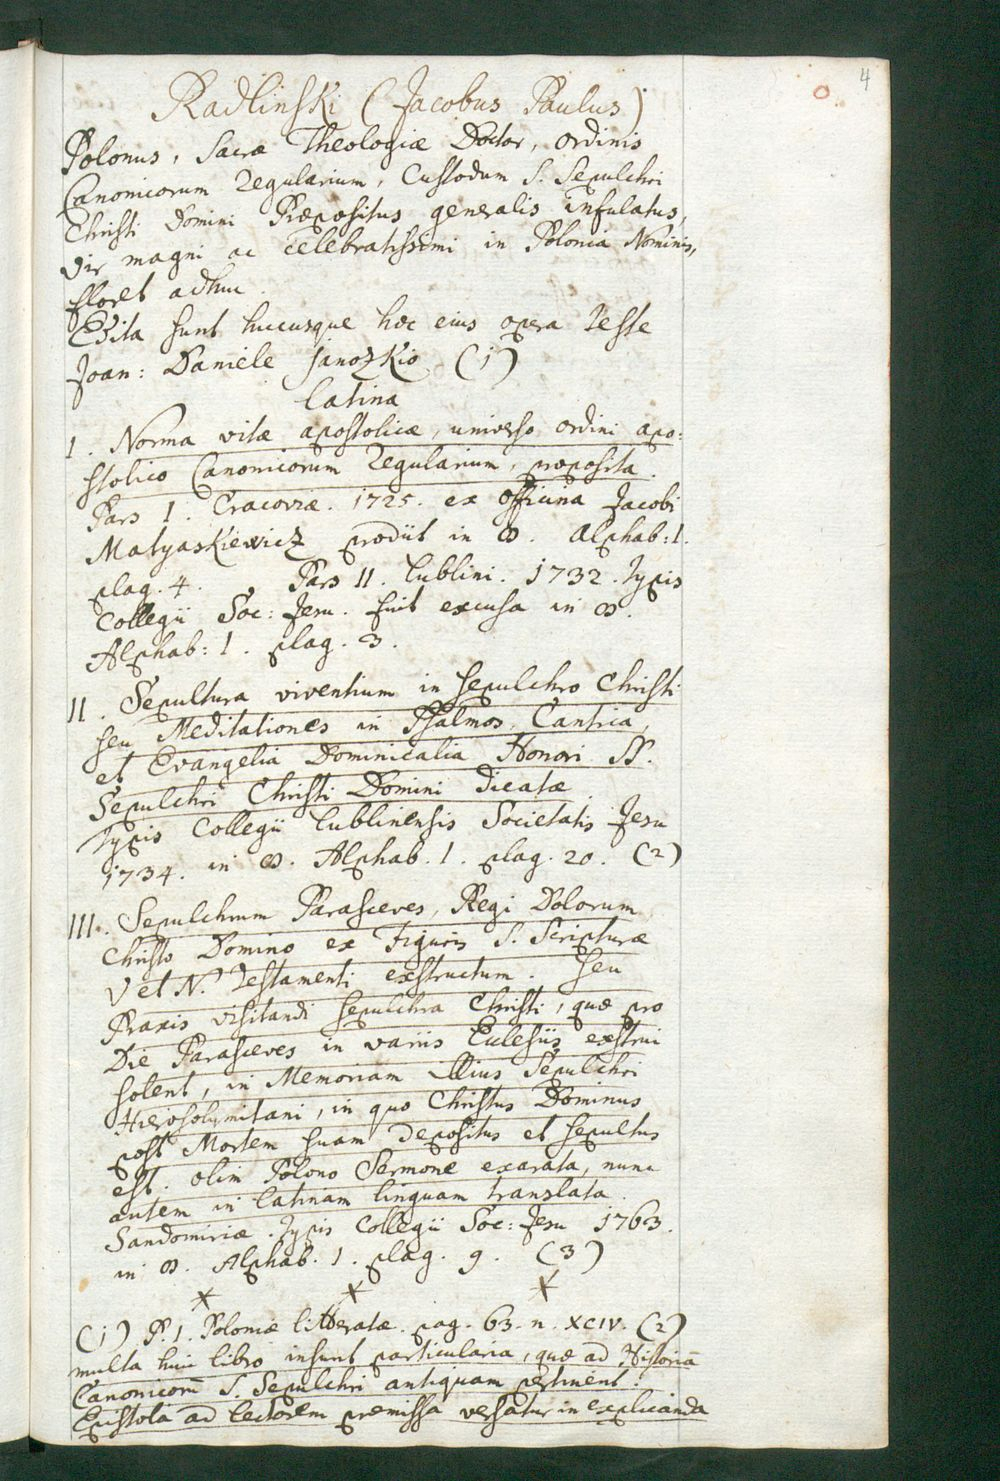 4
Radlinski (Jacobus Paulus)
Polonus, Sacræ Theologiæ Doctor, ordinis
Canonicorum Regularium, Custodum S. Sepulchri
Christi Domini Præpositus generalis infulatus,
Vir magni ac celebratissimi in Polonia Nominis,
floret adhuc.
Edita sunt hucusque hæc eius opera teste
Joan: Daniele Janozkio (1)
Latina
I. Norma vitæ apostolicæ, universo ordini apo:
stolico Canonicorum Regularium, proposita.
Pars I. Cracoviæ. 1725. ex officina Jacobi
Matyaskiewicz prodiit in 8. Alphab: 1.
plag. 4. Pars II. Lublini. 1732. Typis
Collegii Soc: Jesu. fuit excusa in 8.
Alphab: 1. plag. 3.
II. Sepultura viventium in sepulchro Christi
seu Meditationes in Psalmos, Cantica,
et Evangelia Dominicalia Honori SS.
Sepulchri Christi Domini dicatæ.
Typis Collegii Lublinensis Societatis Jesu
1734. in 8. Alphab. 1. plag. 20. (2)
III. Sepulchrum Parasceves, Regi Dolorum
Christo Domino ex Figuris S. Scripturæ
V et N. Testamenti exstructum. seu
Praxis visitandi sepulchra Christi, quæ pro
Die Parasceves in variis Eclesiis exstrui
solent, in Memoriam illius Sepulchri
Hierosolymitani, in quo Christus Dominus
post Mortem suam depositus et sepultus
est. olim Polono Sermone exarata, nunc
autem in latinam linguam translata.
Sandomiriæ. Typis Collegii Soc: Jesu 1763.
in 8. Alphab. 1. plag. 9. (3)
* * *
(1) P. I. Poloniæ litteratæ. pag. 63. n. XCIV. (2)
multa huic libro insunt particularia, quæ ad Historiā
Canonicorū S. Sepulchri antiquam pertinent.
Epistola ad lectorem præmissa versatur in explicanda